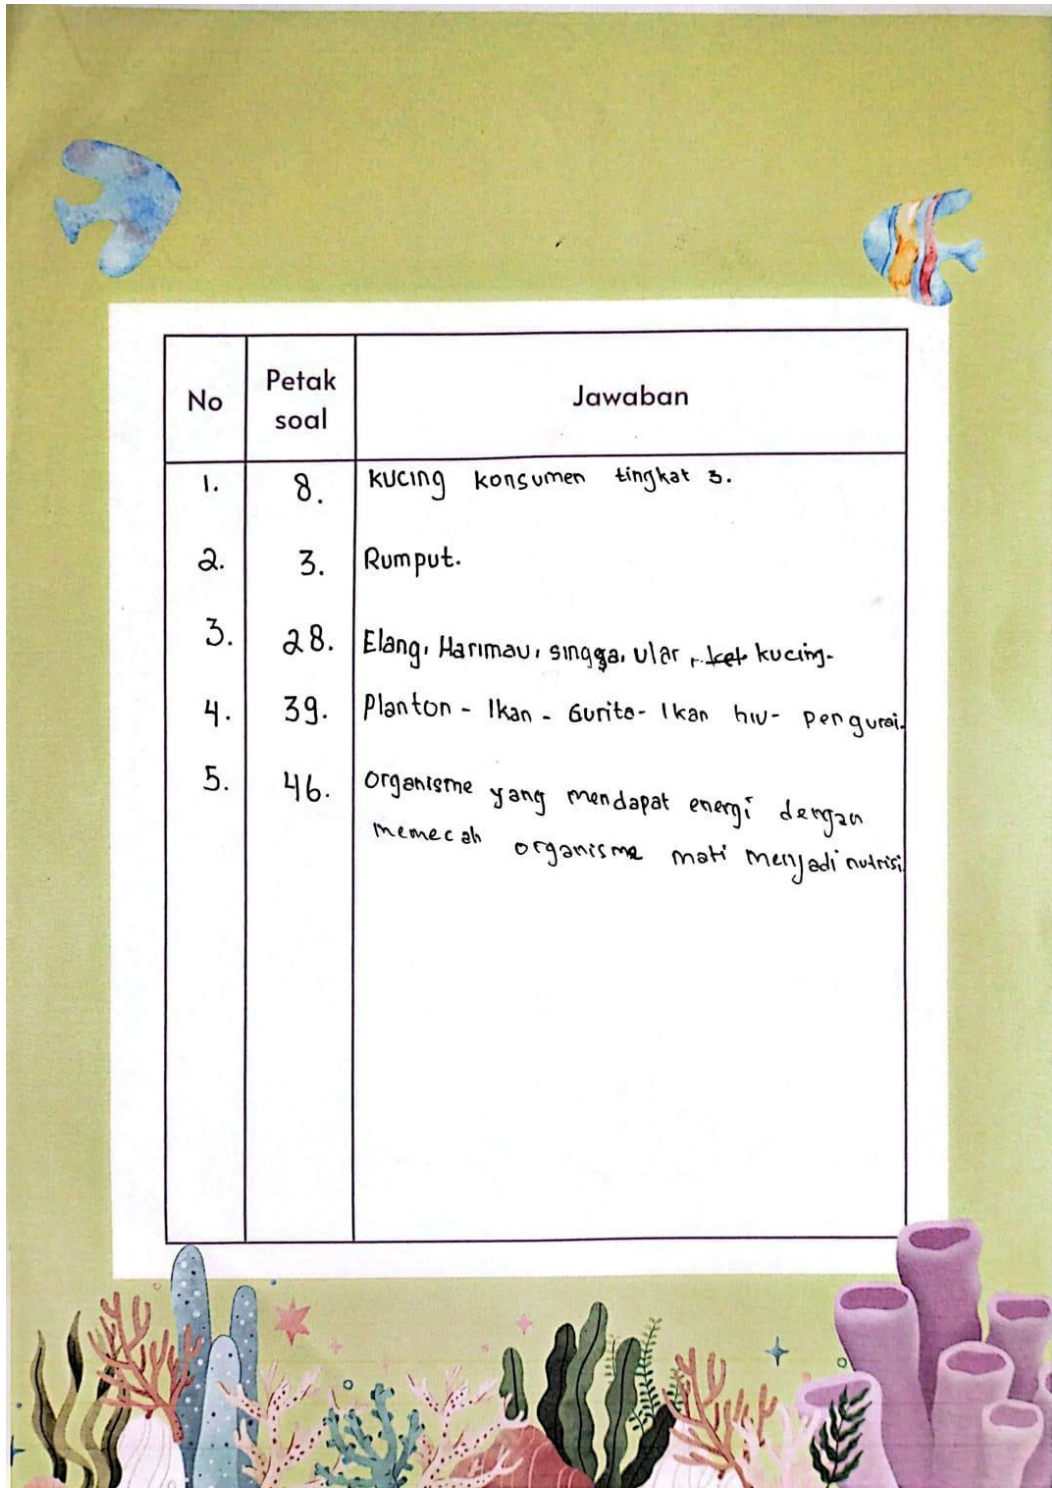 No Petak soal Jawaban
1. 8. Kucing konsumen tingkat 3.
2. 3. Rumput.
3. 28. Elang, Harimau, singga, ular, ket kucing.
4. 39. Planton - Ikan - Gurita - Ikan hiu - pengurai.
5. 46. organisme yang mendapat energi dengan
memecah organisme mati menjadi nutrisi